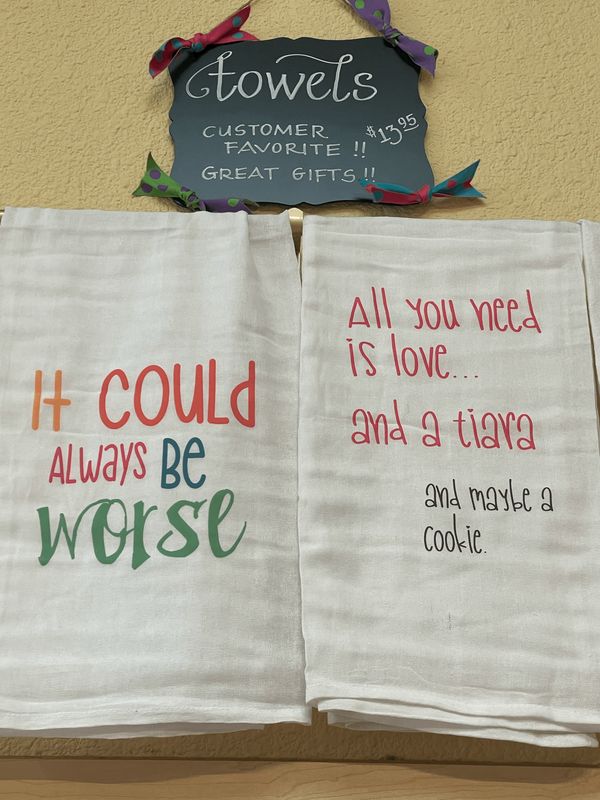 towels
CUSTOMER
FAVORITE !!
$13.95
GREAT GIFTS !!
It COULd
ALWAYS BE
worse
All you need
is love...
and a tiara
and maybe a
cookie.